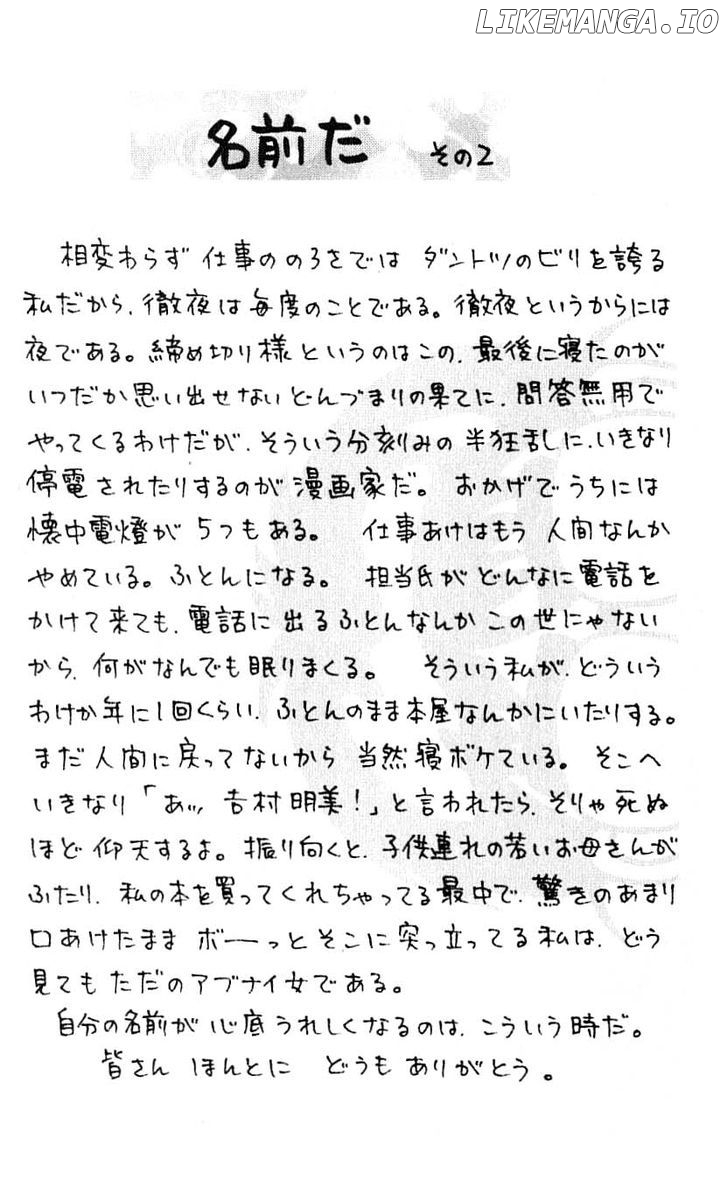 LIKEMANGA.IO
名前だ その2
相変わらず 仕事ののろさでは ダントツのビリを誇る
私だから、徹夜は毎度のことである。徹夜というからには
夜である。締め切り様というのはこの、最後に寝たのが
いつだか思い出せないどんづまりの果てに、問答無用で
やってくるわけだが、そういう分刻みの半狂乱に、いきなり
停電されたりするのが漫画家だ。 おかげでうちには
懐中電燈が 5つもある。 仕事あけはもう 人間なんか
やめている。ふとんになる。 担当氏がどんなに電話を
かけて来ても、電話に出るふとんなんかこの世にゃない
から、何がなんでも眠りまくる。 そういう私が、どういう
わけか年に1回くらい、ふとんのまま本屋なんかにいたりする。
まだ人間に戻ってないから 当然寝ボケている。そこへ
いきなり「あッ、吉村明美!」と言われたら、そりゃ死ぬ
ほど仰天するよ。振り向くと、子供連れの若いお母さんが
ふたり、私の本を買ってくれちゃってる最中で、驚きのあまり
口あけたまま ボ——っとそこに突っ立ってる私は、どう
見てもただのアブナイ女である。
自分の名前が心底うれしくなるのは、こういう時だ。
皆さん ほんとに どうもありがとう。